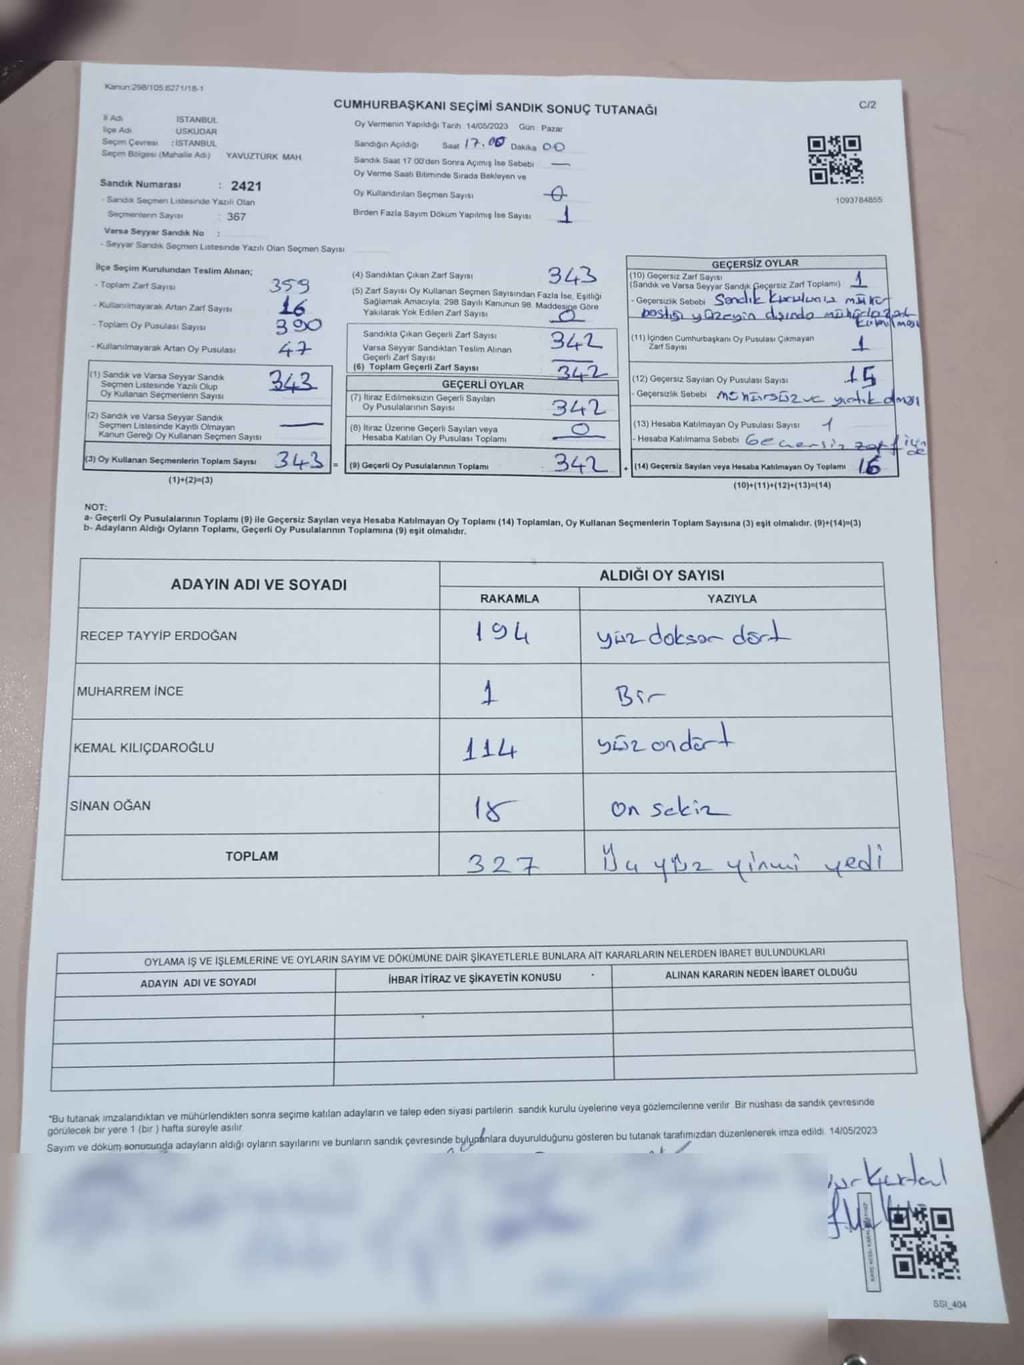 Kanun:298/105:6271/18-1
CUMHURBAŞKANI SEÇİMİ SANDIK SONUÇ TUTANAĞI
C/2
İl Adı İSTANBUL
İlçe Adı ÜSKÜDAR
Seçim Çevresi : İSTANBUL
Seçim Bölgesi (Mahalle Adı) YAVUZTÜRK MAH.
Sandık Numarası : 2421
- Sandık Seçmen Listesinde Yazılı Olan
Seçmenlerin Sayısı : 367
Varsa Seyyar Sandık No :
- Seyyar Sandık Seçmen Listesinde Yazılı Olan Seçmen Sayısı
Oy Vermenin Yapıldığı Tarih :14/05/2023 Gün : Pazar
Sandığın Açıldığı Saat 17.00 Dakika 00
Sandık Saat 17:00'den Sonra Açılmış İse Sebebi —
Oy Verme Saati Bitiminde Sırada Bekleyen ve
Oy Kullandırılan Seçmen Sayısı 0
Birden Fazla Sayım Döküm Yapılmış İse Sayısı 1
1093784855
İlçe Seçim Kurulundan Teslim Alınan;
- Toplam Zarf Sayısı 359
- Kullanılmayarak Artan Zarf Sayısı 16
- Toplam Oy Pusulası Sayısı 390
- Kullanılmayarak Artan Oy Pusulası 47
(1) Sandık ve Varsa Seyyar Sandık
Seçmen Listesinde Yazılı Olup
Oy Kullanan Seçmenlerin Sayısı 343
(2) Sandık ve Varsa Seyyar Sandık
Seçmen Listesinde Kayıtlı Olmayan
Kanun Gereği Oy Kullanan Seçmen Sayısı —
(3) Oy Kullanan Seçmenlerin Toplam Sayısı 343 =
(1)+(2)=(3)
(4) Sandıktan Çıkan Zarf Sayısı 343
(5) Zarf Sayısı Oy Kullanan Seçmen Sayısından Fazla İse, Eşitliği
Sağlamak Amacıyla, 298 Sayılı Kanunun 98. Maddesine Göre
Yakılarak Yok Edilen Zarf Sayısı 0
Sandıkta Çıkan Geçerli Zarf Sayısı 342
Varsa Seyyar Sandıktan Teslim Alınan
Geçerli Zarf Sayısı —
(6) Toplam Geçerli Zarf Sayısı 342
GEÇERLİ OYLAR
(7) İtiraz Edilmeksizin Geçerli Sayılan
Oy Pusulalarının Sayısı 342
(8) İtiraz Üzerine Geçerli Sayılan veya
Hesaba Katılan Oy Pusulası Toplamı 0
(9) Geçerli Oy Pusulalarının Toplamı 342 +
GEÇERSİZ OYLAR
(10) Geçersiz Zarf Sayısı 1
(Sandık ve Varsa Seyyar Sandık Geçersiz Zarf Toplamı)
- Geçersizlik Sebebi Sandık Kurulunu mühür
baskısı yüzeyin dışında
(11) İçinden Cumhurbaşkanı Oy Pusulası Çıkmayan
Zarf Sayısı 1
(12) Geçersiz Sayılan Oy Pusulası Sayısı 15
- Geçersizlik Sebebi mühürsüz ve yırtık olması
(13) Hesaba Katılmayan Oy Pusulası Sayısı 1
- Hesaba Katılmama Sebebi Geçersiz zarf
(14) Geçersiz Sayılan veya Hesaba Katılmayan Oy Toplamı 16
(10)+(11)+(12)+(13)=(14)
NOT:
a- Geçerli Oy Pusulalarının Toplamı (9) ile Geçersiz Sayılan veya Hesaba Katılmayan Oy Toplamı (14) Toplamları, Oy Kullanan Seçmenlerin Toplam Sayısına (3) eşit olmalıdır. (9)+(14)=(3)
b- Adayların Aldığı Oyların Toplamı, Geçerli Oy Pusulalarının Toplamına (9) eşit olmalıdır.
ADAYIN ADI VE SOYADI ALDIĞI OY SAYISI
RAKAMLA YAZIYLA
RECEP TAYYİP ERDOĞAN 194 yüz doksan dört
MUHARREM İNCE 1 Bir
KEMAL KILIÇDAROĞLU 114 yüz ondört
SİNAN OĞAN 18 on sekiz
TOPLAM 327 Üç yüz yirmi yedi
OYLAMA İŞ VE İŞLEMLERİNE VE OYLARIN SAYIM VE DÖKÜMÜNE DAİR ŞİKAYETLERLE BUNLARA AİT KARARLARIN NELERDEN İBARET BULUNDUKLARI
ADAYIN ADI VE SOYADI İHBAR İTİRAZ VE ŞİKAYETİN KONUSU ALINAN KARARIN NEDEN İBARET OLDUĞU
*Bu tutanak imzalandıktan ve mühürlendikten sonra seçime katılan adayların ve talep eden siyasi partilerin sandık kurulu üyelerine veya gözlemcilerine verilir. Bir nüshası da sandık çevresinde
görülecek bir yere 1 (bir) hafta süreyle asılır.
Sayım ve döküm sonucunda adayların aldığı oyların sayılarını ve bunların sandık çevresinde bulunanlara duyurulduğunu gösteren bu tutanak tarafımızdan düzenlenerek imza edildi. 14/05/2023
SSI_404